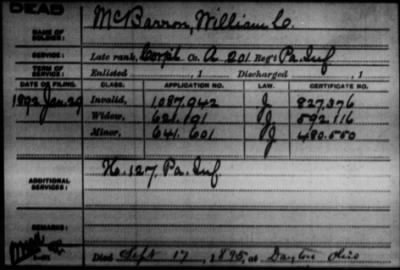 DEAD
NAME OF SOLDIER: McBarron, William C.
SERVICE: Late rank, Corp'l Co. A 201 Reg't Pa. Inf
TERM OF SERVICE: Enlisted , 1 Discharged , 1
DATE OF FILING. CLASS. APPLICATION NO. LAW. CERTIFICATE NO.
1892 Jan. 29 Invalid, 1,087,942 J 827,376
Widow, 621,191 J 592,116
Minor, 641,601 J 480,550
ADDITIONAL SERVICES: H. 127, Pa. Inf.
REMARKS:
Died Sept 17, 1895, at Dayton Ohio